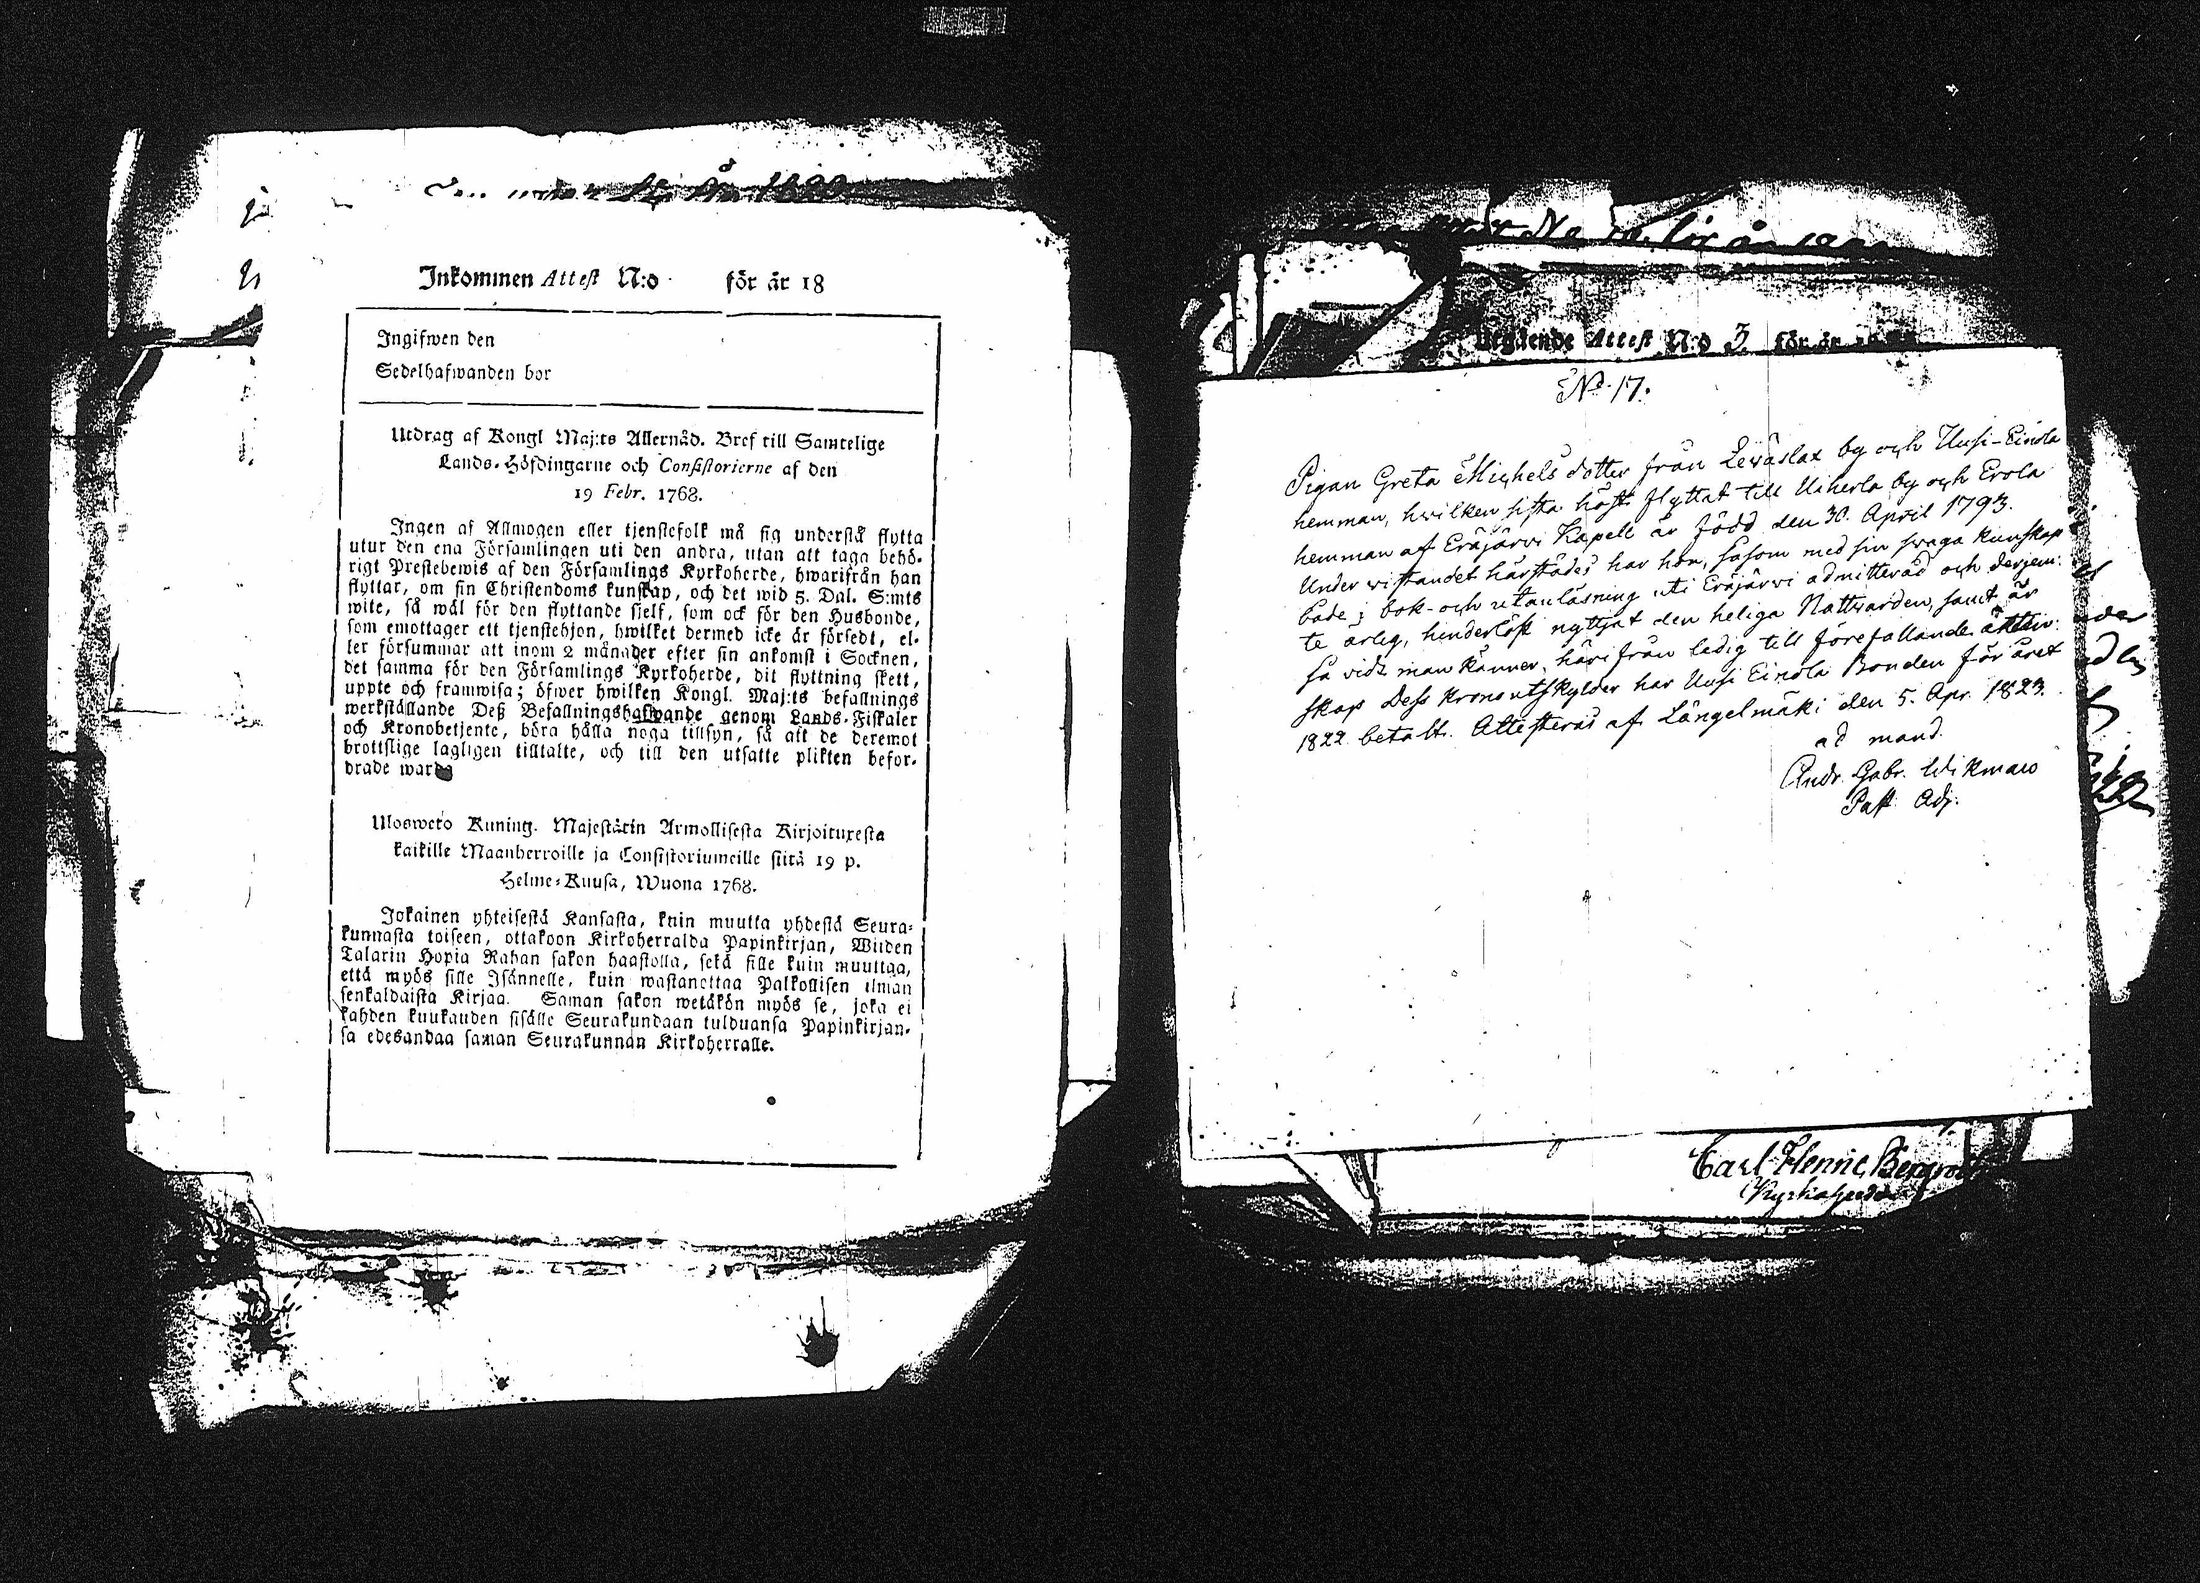 Inkommen Attest N:o för år 18
Ingifwen den
Sedelhafwanden bor
Utdrag af Kongl Maj:ts Allernåd. Bref till Samtelige
Lands-Höfdingarne och Consistorierne af den
19 Febr. 1768.
Ingen af Allmogen eller tjenstefolk må sig understå flytta
utur den ena Församlingen uti den andra, utan att taga behö-
rigt Prestebewis af den Församlings Kyrkoherde, hwarifrån han
flyttar, om sin Christendoms kunskap, och det wid 5. Dal. S:mts
wite, så wäl för den flyttande sjelf, som ock för den Husbonde,
som emottager ett tjenstehjon, hwilket dermed icke är försedt, el-
ler försummar att inom 2 månader efter sin ankomst i Socknen,
det samma för den Församlings Kyrkoherde, dit flyttning skett,
uppte och framwisa; öfwer hwilken Kongl. Maj:ts befallnings
werkställande Deß Befallningshafwande genom Lands-Fiskaler
och Kronobetjente, böra hålla noga tillsyn, så att de deremot
brottslige lagligen tilltalte, och till den utsatte plikten befor-
drade warda
Ulosweto Kuning. Majestätin Armollisesta Kirjoituxesta
kaikille Maanherroille ja Consistoriumeille siitä 19 p.
Helme-Kuusa, Wuona 1768.
Jokainen yhteisestä Kansasta, kuin muutta yhdestä Seura-
kunnasta toiseen, ottakoon Kirkoherralda Papinkirjan, Wiiden
Talarin Hopia Rahan sakon haastolla, sekä sille kuin muuttaa,
että myös sille Isännelle, kuin wastanottaa Palkollisen ilman
senkaldaista Kirjaa. Saman sakon wetäkön myös se, joka ei
kahden kuukauden sisälle Seurakundaan tulduansa Papinkirjan-
sa edesandaa saman Seurakunnan Kirkoherralle.
Utgående Attest N:o 3 för år
No. 17.
Pigan Greta Michels dotter från Leväslax by och Uusi-Einola
hemman, hwilken sista höst flyttat till Uiherla by och Erola
hemman af Eräjärvi Kapell är född den 30. April 1793.
Under wistandet härstädes har hon, såsom med sin swaga kunskap
både i bok- och utanläsning uti Eräjärwi admitterad och derjem:
te ärlig, hinderlöst nyttjat den heliga Nattwarden, samt är
så vidt man känner, härifrån ledig till förefallande äkten-
skap Dess kronoutskylder har Uusi Einola Bonden för året
1822 betalt. Attesteras af Längelmäki den 5. Apr. 1823.
ad mand.
Andr. Gabr. Wikman
Past. Adj.
Carl Henric